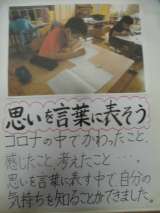 思いを言葉に表そう
コロナの中でかわったこと、
感じたこと、考えたこと・・・。
思いを言葉に表す中で、自分の
気持ちを知ることができました。